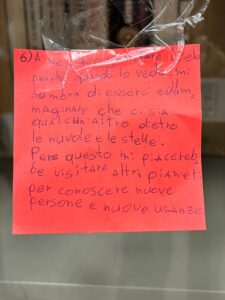 6) A me
perché quando lo vedo mi
sembra di esserci e di im
maginare che ci sia
qualcun'altro dietro
le nuvole e le stelle.
Però questo mi piacereb
be visitare altri pianeti
per conoscere nuove
persone e nuove usanze.